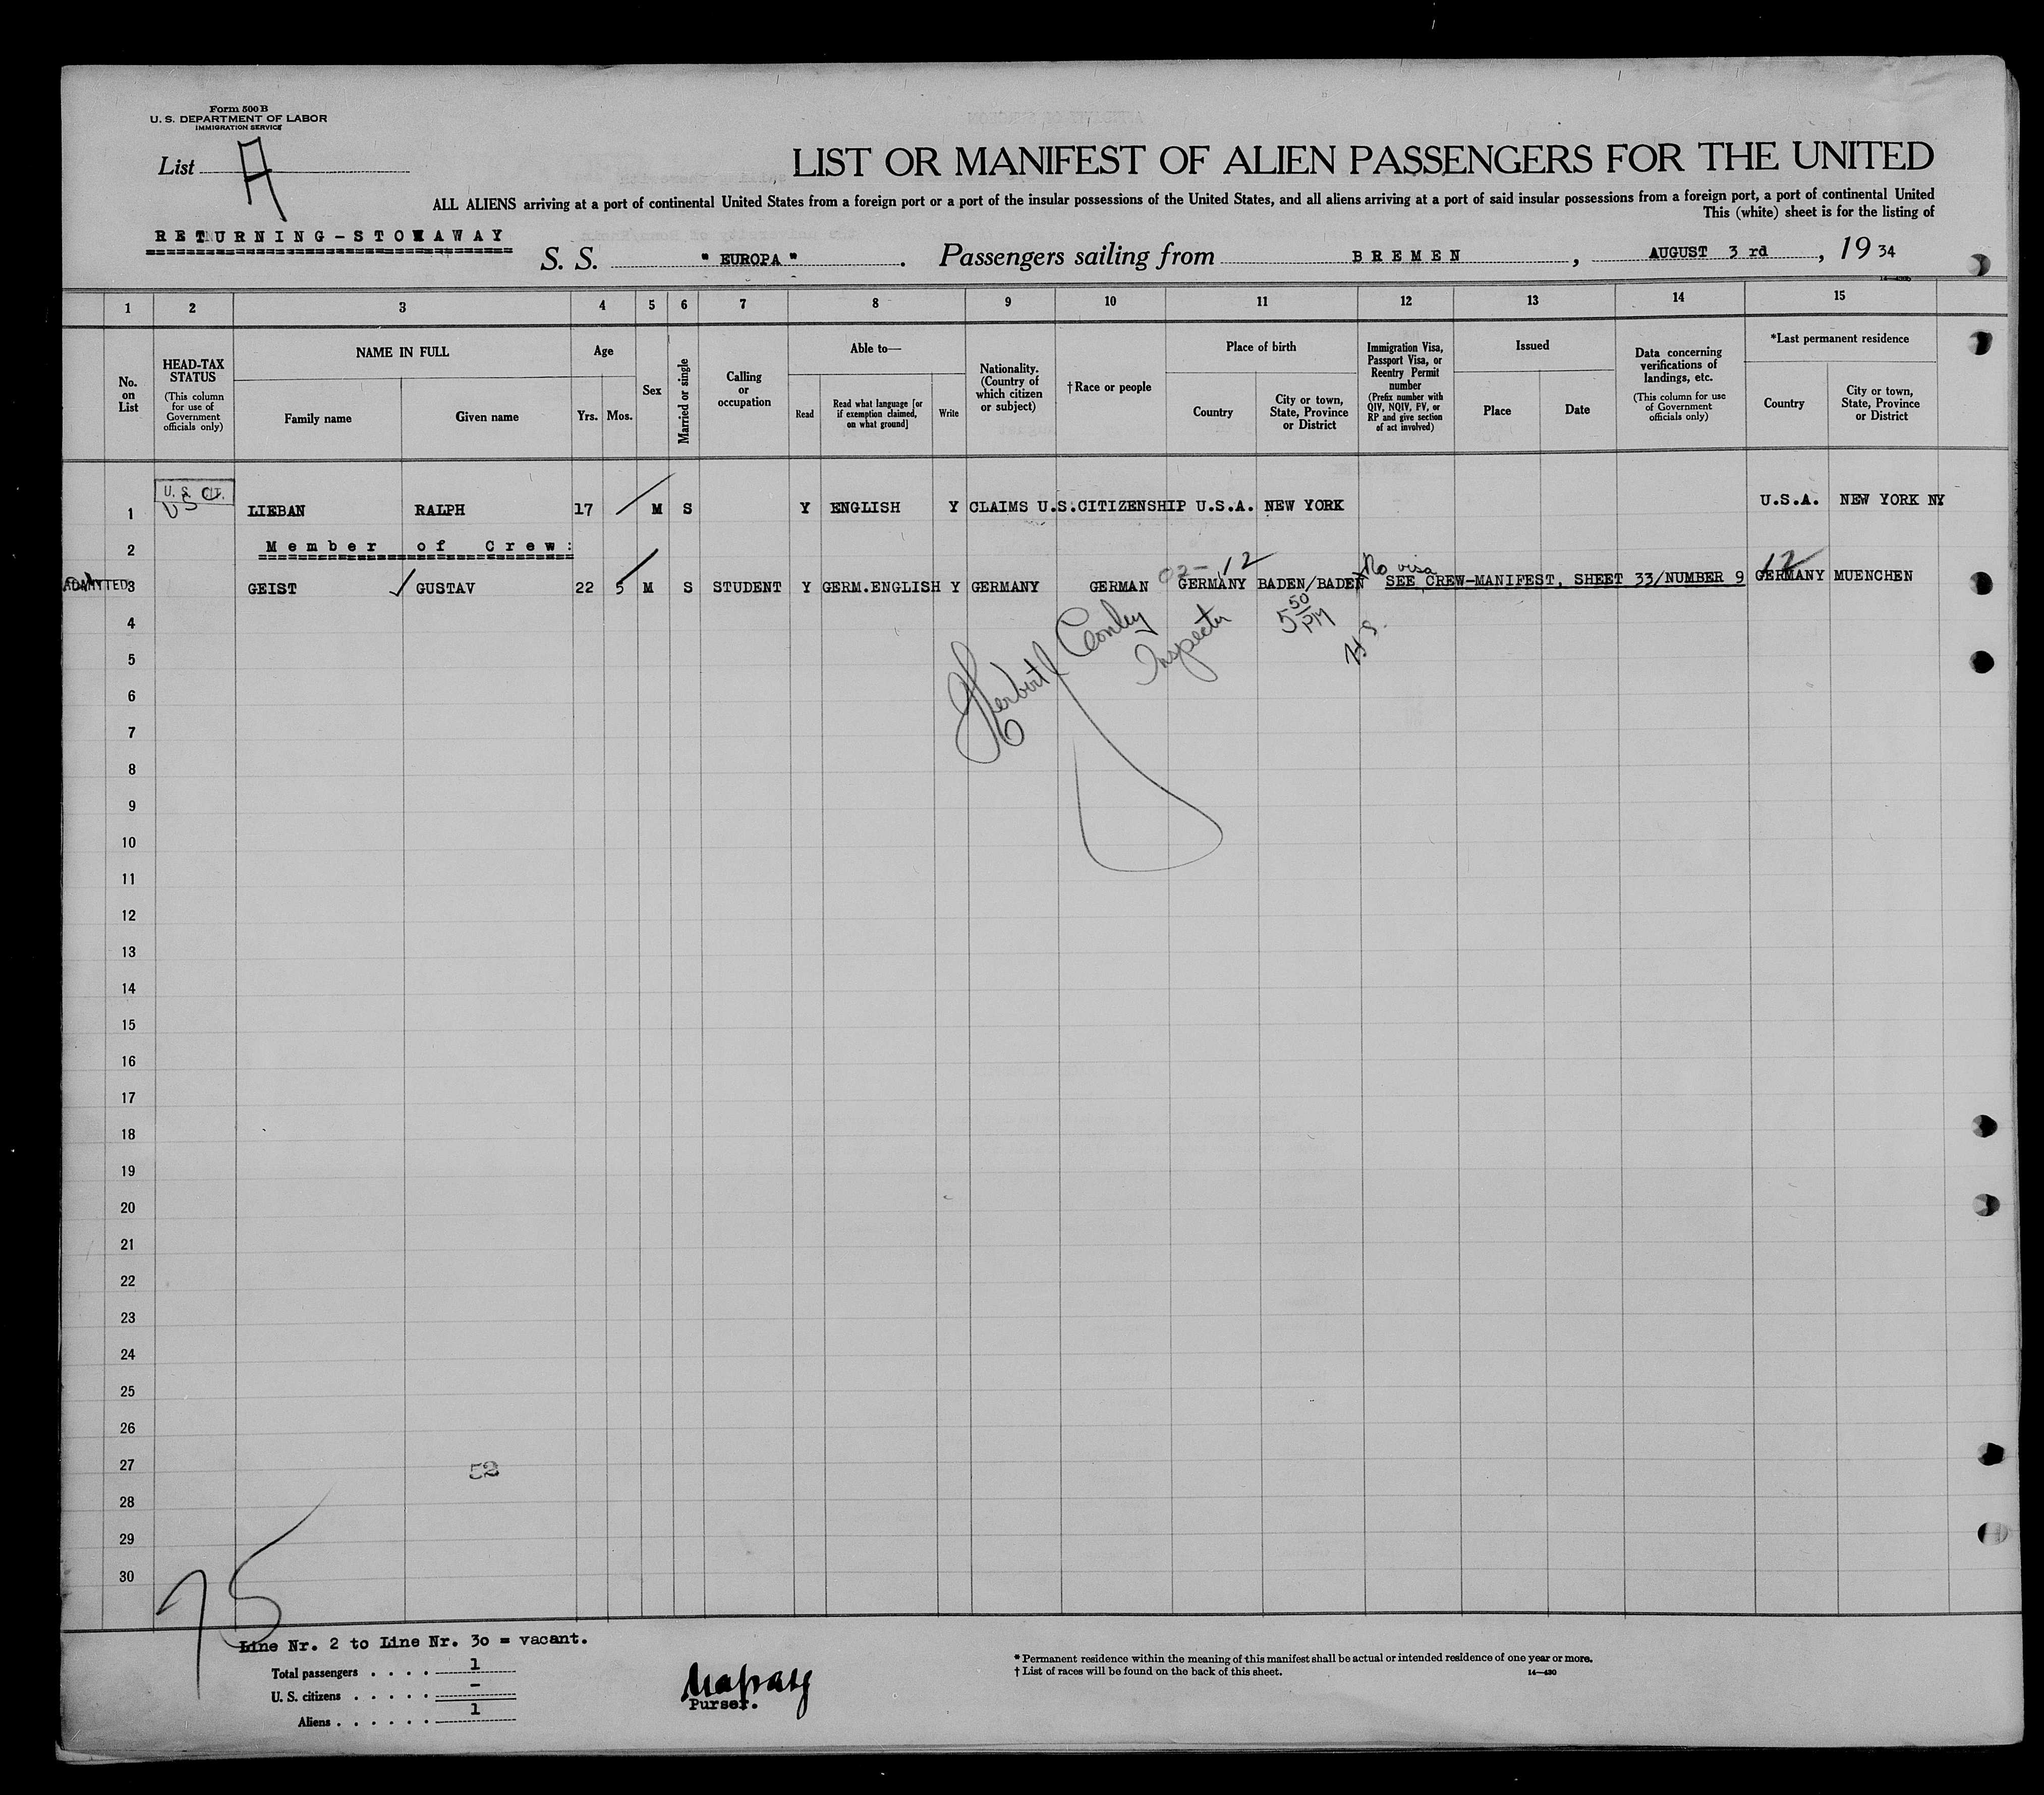 Form 500 B
U. S. DEPARTMENT OF LABOR
IMMIGRATION SERVICE
List A
LIST OR MANIFEST OF ALIEN PASSENGERS FOR THE UNITED
ALL ALIENS arriving at a port of continental United States from a foreign port or a port of the insular possessions of the United States, and all aliens arriving at a port of said insular possessions from a foreign port, a port of continental United
This (white) sheet is for the listing of
RETURNING-STOWAWAY
S. S. "EUROPA". Passengers sailing from BREMEN, AUGUST 3 rd, 1934
1 2 3 4 5 6 7 8 9 10 11 12 13 14 15
No. on List
HEAD-TAX STATUS
(This column for use of Government officials only)
NAME IN FULL
Family name Given name
Age
Yrs. Mos.
Sex
Married or single
Calling or occupation
Able to—
Read
Read what language [or if exemption claimed, on what ground]
Write
Nationality. (Country of which citizen or subject)
†Race or people
Place of birth
Country
City or town, State, Province or District
Immigration Visa, Passport Visa, or Reentry Permit number
(Prefix number with QIV, NQIV, PV, or RP and give section of act involved)
Issued
Place Date
Data concerning verifications of landings, etc.
(This column for use of Government officials only)
*Last permanent residence
Country
City or town, State, Province or District
U. S. CIT.
US
1 LIEBAN RALPH 17 M S Y ENGLISH Y CLAIMS U.S.CITIZENSHIP U.S.A. NEW YORK U.S.A. NEW YORK NY
2 Member of Crew:
02- 12 No visa 12
ADMITTED 3 GEIST ✓ GUSTAV 22 5 M S STUDENT Y GERM.ENGLISH Y GERMANY GERMAN GERMANY BADEN/BADEN SEE CREW-MANIFEST, SHEET 33/NUMBER 9 GERMANY MUENCHEN
4
Herbert J Conley
Inspector
5 50 PM
H S.
5
6
7
8
9
10
11
12
13
14
15
16
17
18
19
20
21
22
23
24
25
26
27 52
28
29
30
75
Line Nr. 2 to Line Nr. 30 = vacant.
Total passengers . . . . 1
U. S. citizens . . . . . -
Aliens . . . . . . 1
Purser.
* Permanent residence within the meaning of this manifest shall be actual or intended residence of one year or more.
† List of races will be found on the back of this sheet.
14—430